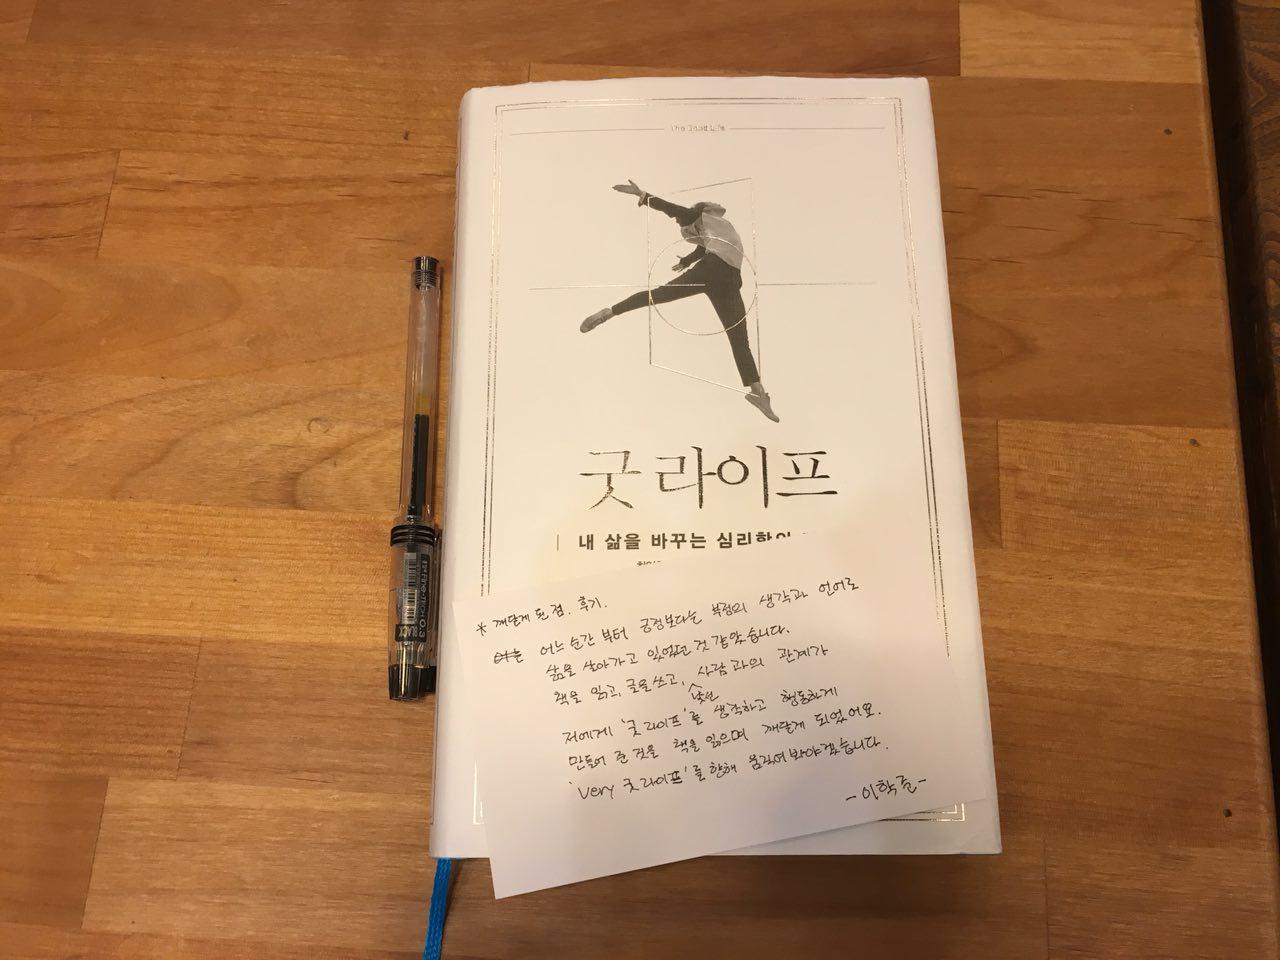 The Good Life
굿 라이프
내 삶을 바꾸는 심리학의
* 깨닫게 된 점. 후기.
어느 순간부터 긍정보다는 부정의 생각과 언어로
삶을 살아가고 있었던 것 같았습니다.
책을 읽고, 글을 쓰고, 낯선 사람과의 관계가
저에게 '굿라이프'를 생각하고 행동하게
만들어 준 것을 책을 읽으며 깨닫게 되었어요.
'very 굿라이프'를 향해 움직여봐야겠습니다.
- 이학준 -
Fine-Tech 0.3
BLACK